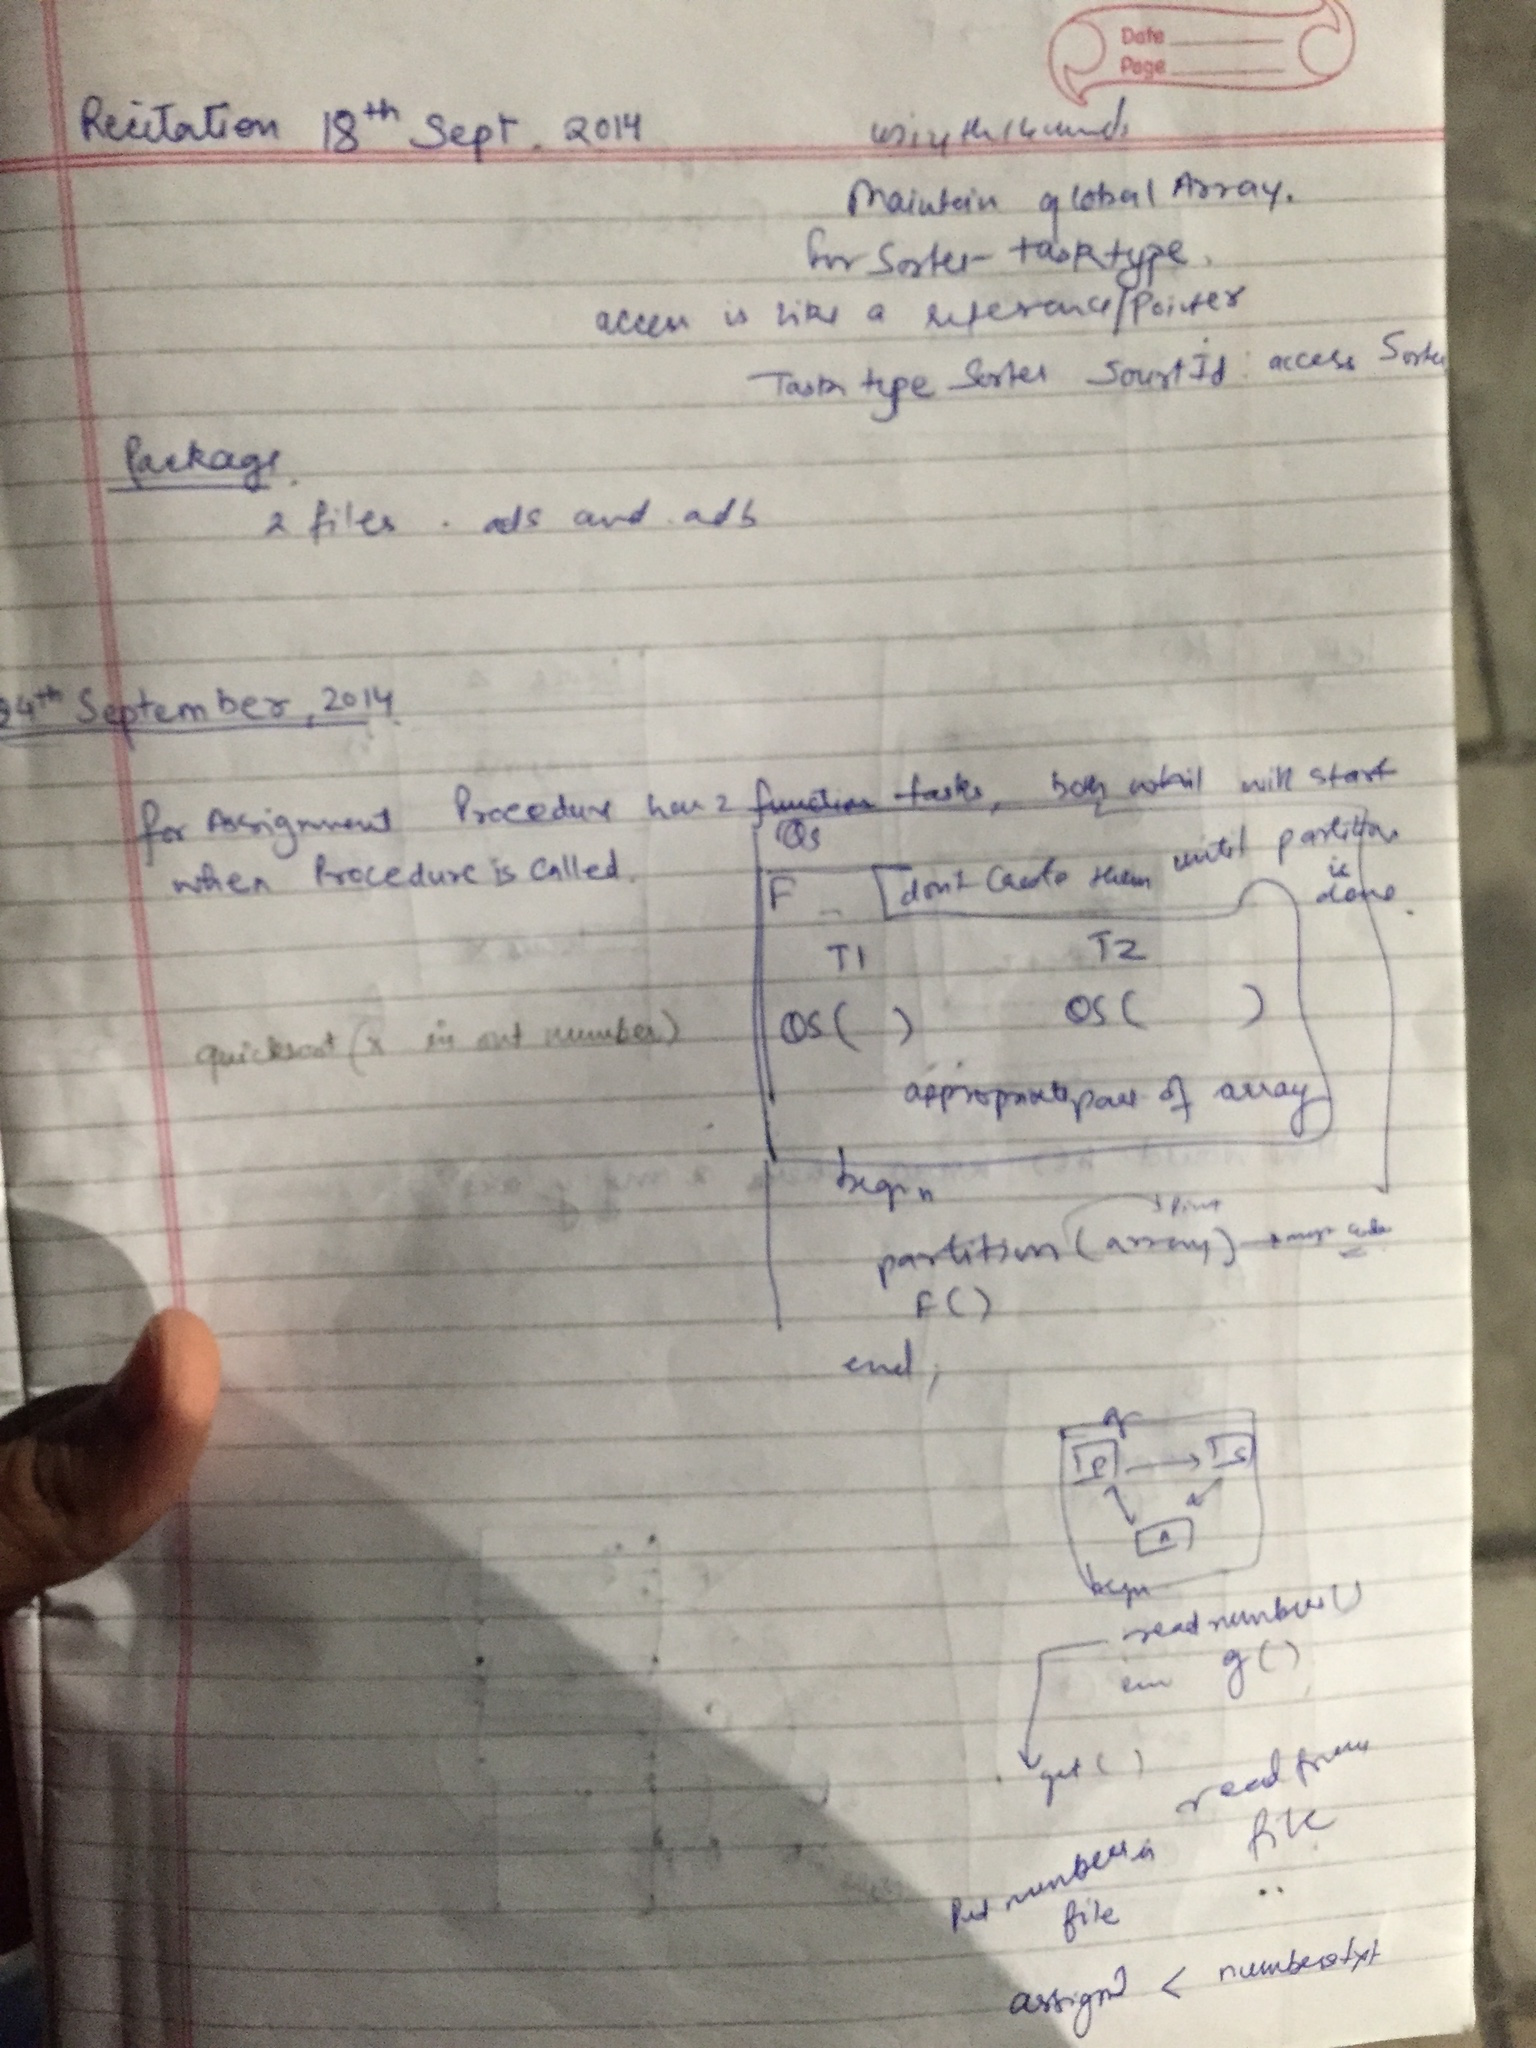 Date
Page
Recitation 18th Sept. 2014
Maintain global Array.
for Sorter task type.
access is like a reference/Pointer
Task type Sorter SourtId : access Sorter
Package.
2 files . ads and .adb
24th September, 2014
for Assignment Procedure has 2 function tasks, both will start
when Procedure is called.
Qs
F
don't create them until partition
is
done.
T1 T2
QS( ) QS( )
quicksort (x in out number)
appropriate part of array
begin
partition (array)
F()
end;
P S
A
begin
read numbers()
g()
get ( )
read from
file
Put numbers in
file
assign2 < numbers.txt